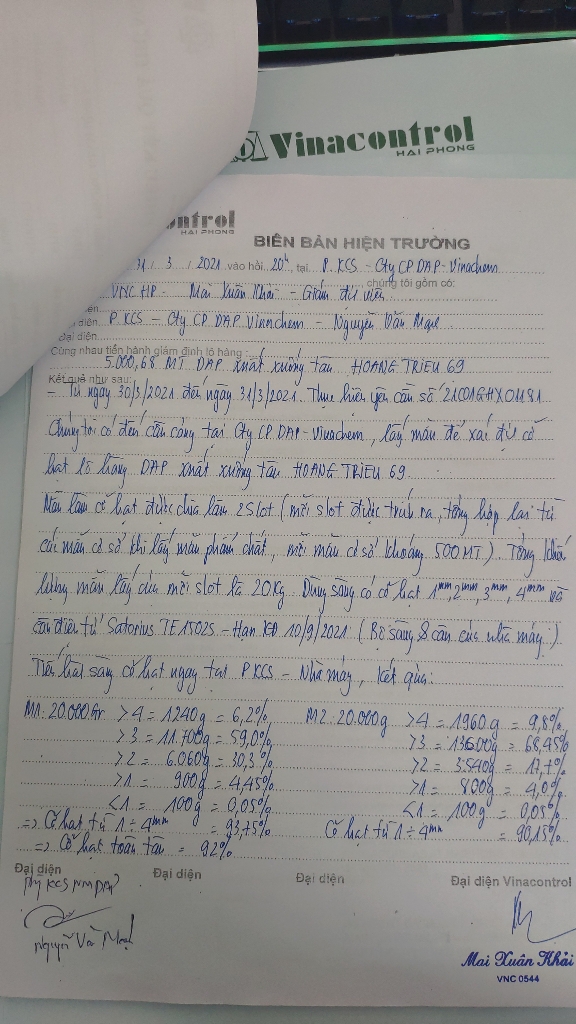 Vinacontrol
HAI PHONG
ntrol
HAI PHONG
BIÊN BẢN HIỆN TRƯỜNG
31/ 3 / 2021 vào hồi 20h, tại P. KCS - Cty CP DAP - Vinachem
chúng tôi gồm có:
VNC HP - Mai Xuân Khải - Giám định viên
diện P. KCS - Cty CP DAP Vinachem - Nguyễn Văn Mạnh
Đại diện
Cùng nhau tiến hành giám định lô hàng:
5.000,68 MT DAP xuất xuống tàu HOANG TRIEU 69
Kết quả như sau:
- Từ ngày 30/3/2021 đến ngày 31/3/2021. Thực hiện yêu cầu số 21C01GHX01181
Chúng tôi có đến cầu cảng tại Cty CP DAP - Vinachem, lấy mẫu để xác định cỡ
hạt lô hàng DAP xuất xuống tàu HOANG TRIEU 69.
Mẫu làm cỡ hạt được chia làm 2 Slot (mỗi slot được trích ra, tổng hợp lại từ
các mẫu cơ sở khi lấy mẫu phẩm chất, mỗi mẫu cơ sở khoảng 500 MT). Tổng khối
lượng mẫu lấy của mỗi slot là 20 Kg. Dùng sàng có cỡ hạt 1mm, 2mm, 3mm, 4mm và
cân điện tử Satorius TE1502S - Hạn KĐ 10/9/2021 (Bộ sàng & cân của nhà máy).
Tiến hành sàng cỡ hạt ngay tại P KCS - Nhà máy, kết quả:
M1: 20.000gr >4 = 1240g = 6,2% M2: 20.000g >4 = 1960g = 9,8%
>3 = 11.700g = 59,0% >3 = 13600g = 68,45%
>2 = 6.060g = 30,3% >2 = 3.540g = 17,7%
>1 = 900g = 4,45% >1 = 800g = 4,0%
<1 = 100g = 0,05% <1 = 100g = 0,05%
=> Cỡ hạt từ 1 ÷ 4mm = 93,75% Cỡ hạt từ 1 ÷ 4mm = 90,15%
=> Cỡ hạt toàn tàu = 92%
Đại diện Đại diện Đại diện Đại diện Vinacontrol
KCS NM DAP
Nguyễn Văn Mạnh
Mai Xuân Khải
VNC 0544